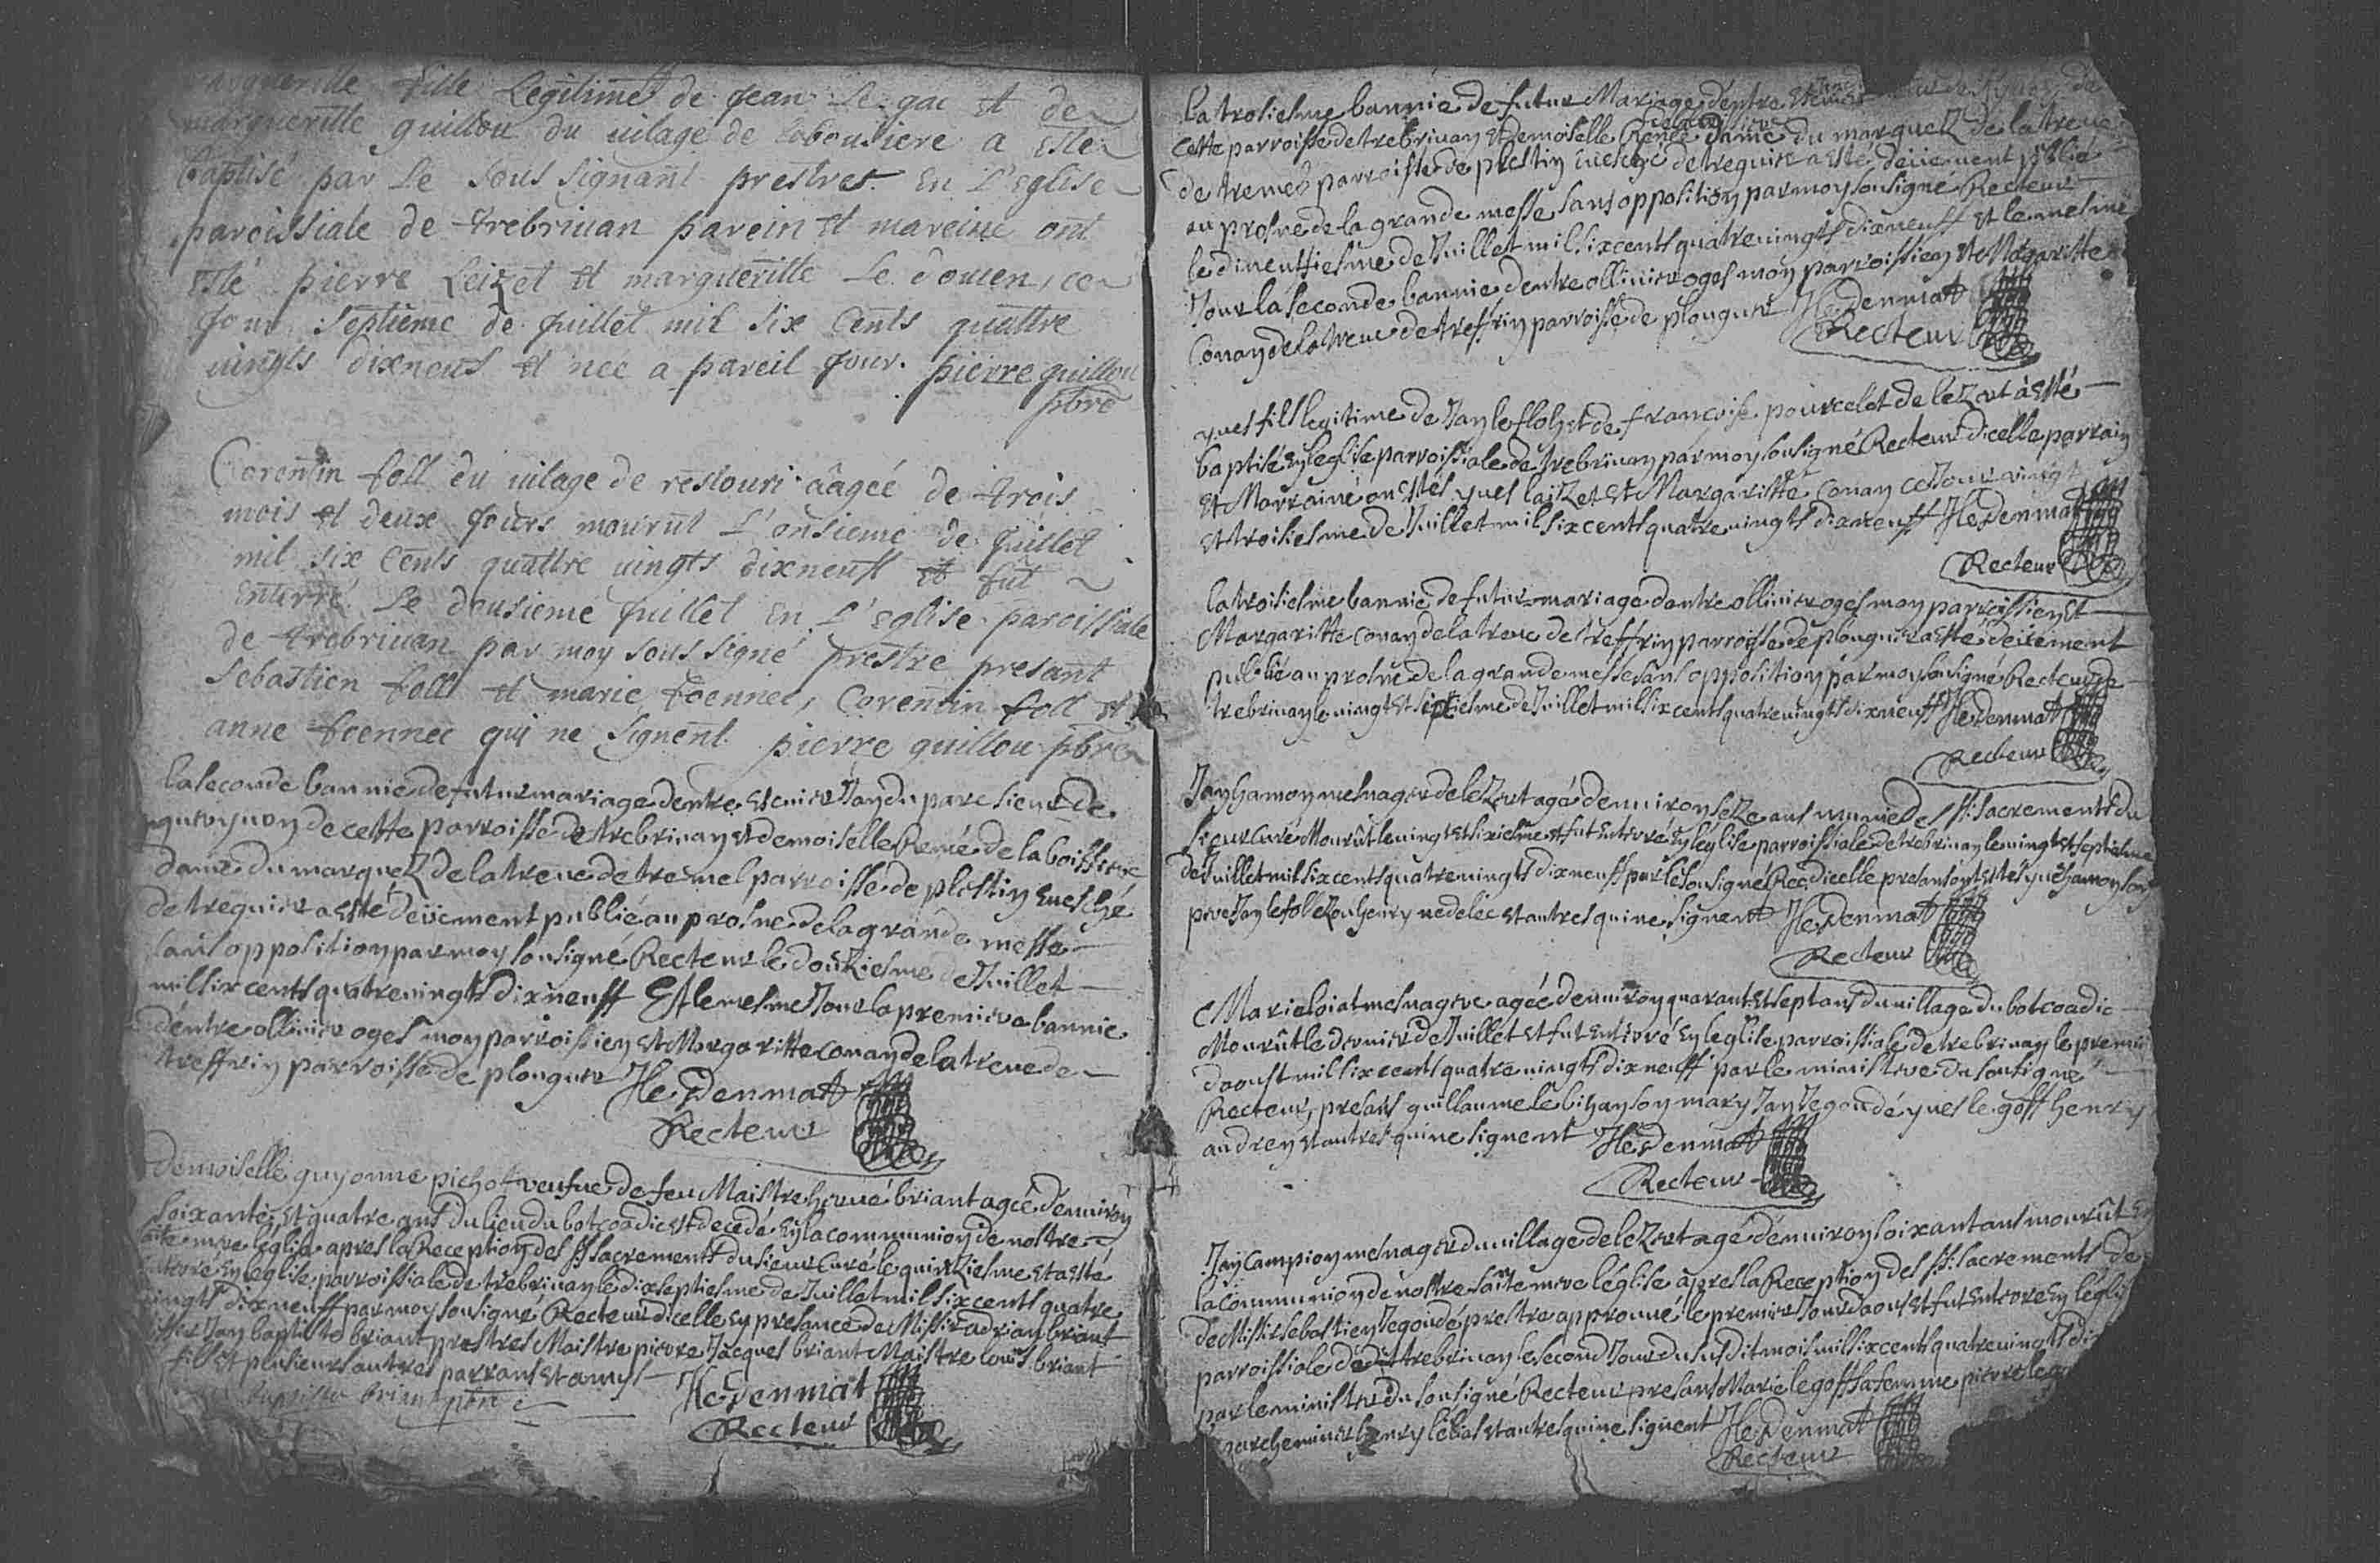 marguerille fille Legitime de Jean Le gac et de
marguerille guillou du uilage de laboulsiere a esté
baptisé par Le sous signant prestres En L'Eglise
paroissiale de trebriuan parein et mareine ont
esté pierre Leizet et marguerille Le douen, ce
jour septieme de Juillet mil six Cents quattre
uingts dixneuf et nee a pareil jour. pierre guillou
pbre
Corentin foll du uilage de restouri aâgeé de trois
mois et deux jours mourut L'onsieme de Juillet
mil six Cents quattre uingts dixneuf et fut
Enterré Le dousieme juillet En L'Eglise paroissiale
de trebriuan par moy sous signé prestre presant
Sebastien foll et marie foennec, Corentin foll et
anne foennec qui ne signent. pierre guillou pbre
la seconde bannie de futur mariage dentre Escuier Jan du parc sieur de
de cette parroisse de trebriuan et demoiselle Renée de la boissiere
dame du marquez de la treue de tremel parroisse de plestin Euesché
de treguier a esté deüement publié au prosne de la grande messe
sans opposition par moy sousigné Recteur le douziesme de Juillet
mil six cents quatre uingts dixneuff Et le mesme Jour la premiere bannie
dentre olliuier oges mon parroissien et Margaritte conan de la treue de
treffrin parroisse de plouguer He Denmat
Recteur
demoiselle guyonne pichot veufue de feu Maistre herué briant agée denuiron
soixante et quatre ans du lieu du botcoadic est decedé En la communion de nostre
mere léglise apres la Reception des SS sacrements du sieur Curé le quinziesme et a esté
Enterré En leglise parroissiale de trebriuan le dixseptiesme de Juillet mil six cents quatre
uingts dixneuff par moy sousigné Recteur dicelle En presance de Missire adrian briant
Jan baptiste briant prestres Maistre pierre Jacques briant Maistre Louis briant
fils et plusieurs autres parrans et amys
baptiste briant pbre He Denmat
Recteur
la trosiesme bannie de futur Mariage dentre Escuier
cette parroisse de trebriuan et demoiselle Renée de la boissiere dame du marquez de la treue
de tremel parroisse de plestin Euesché de treguier a esté deüement publié
au prosne de la grande messe sans opposition par moy sousigné Recteur
le dineuffiesme de Juillet mil six cents quatre uingts dixneuff et le mesme
Jour la seconde bannie dentre olliuier oges mon parroissien et Margaritte
Conan de la treue de treffrin parroisse de plouguer He Denmat
Recteur
yues fils legitime de Jan le floh et de francoise pourcelet de lezert à esté
baptisé En leglise parroissiale de trebriuan par moy sousigné Recteur dicelle parrain
et Marraine on estés yues laizet et Margaritte conan ce Jour vingt
et troisiesme de Juillet mil six cents quatre uingts dixneuff He Denmat
Recteur
la troisiesme bannie de futur mariage dentre olliuier oges mon parroissien et
Margaritte conan de la treue de treffrin parroisse de plouguer a esté deüement
publié au prosne de la grande messe sans opposition par moy sousigné Recteur de
trebriuan le uingt et septiesme de Juillet mil six cents quatre uingts dixneuff He Denmat
Recteur
Jan hamon mesnager de lezert agé denuiron seze ans munie des SS. sacrements du
sieur Curé Mourût le uingt et sixiesme et fut Enterré En léglise parroissiale de trebriuan le uingt et septiesme
de Juillet mil six cents quatre uingts dixneuff par le sousigné Rec. dicelle presans ont estés yues hamon son
pere Jan le fol Zou henry nedelec et autres qui ne signent He Denmat
Recteur
Marie loiat mesnagere agée denuiron quarant et sept ans du uillage du botcoadic
Mourût le dernier de Juillet et fut Enterré En leglise parroissiale de trebriuan le premier
daoust mil six cents quatre uingts dixneuff par le ministere du sousigné
Recteur, presans guillaume le bihan son mary Jan Jegoudé yues le goff henry
andren et autres qui ne signent He Denmat
Recteur
Jan Campion mesnager du uillage de lezert agé denuiron soixant ans mourût En
la communion de nostre sainte mere léglise apres la Reception des SS. sacrements de
de Missire sebastien Jegoudé prestre approuué le premier Jour daoust et fut Enterré En léglise
parroissiale de trebriuan le second Jour du susdit mois mil six cents quatre uingts
par le ministere du sousigné Recteur presans Marie le goff sa femme pierre
parcheminer henry le bas et autres qui ne signent He Denmat
Recteur